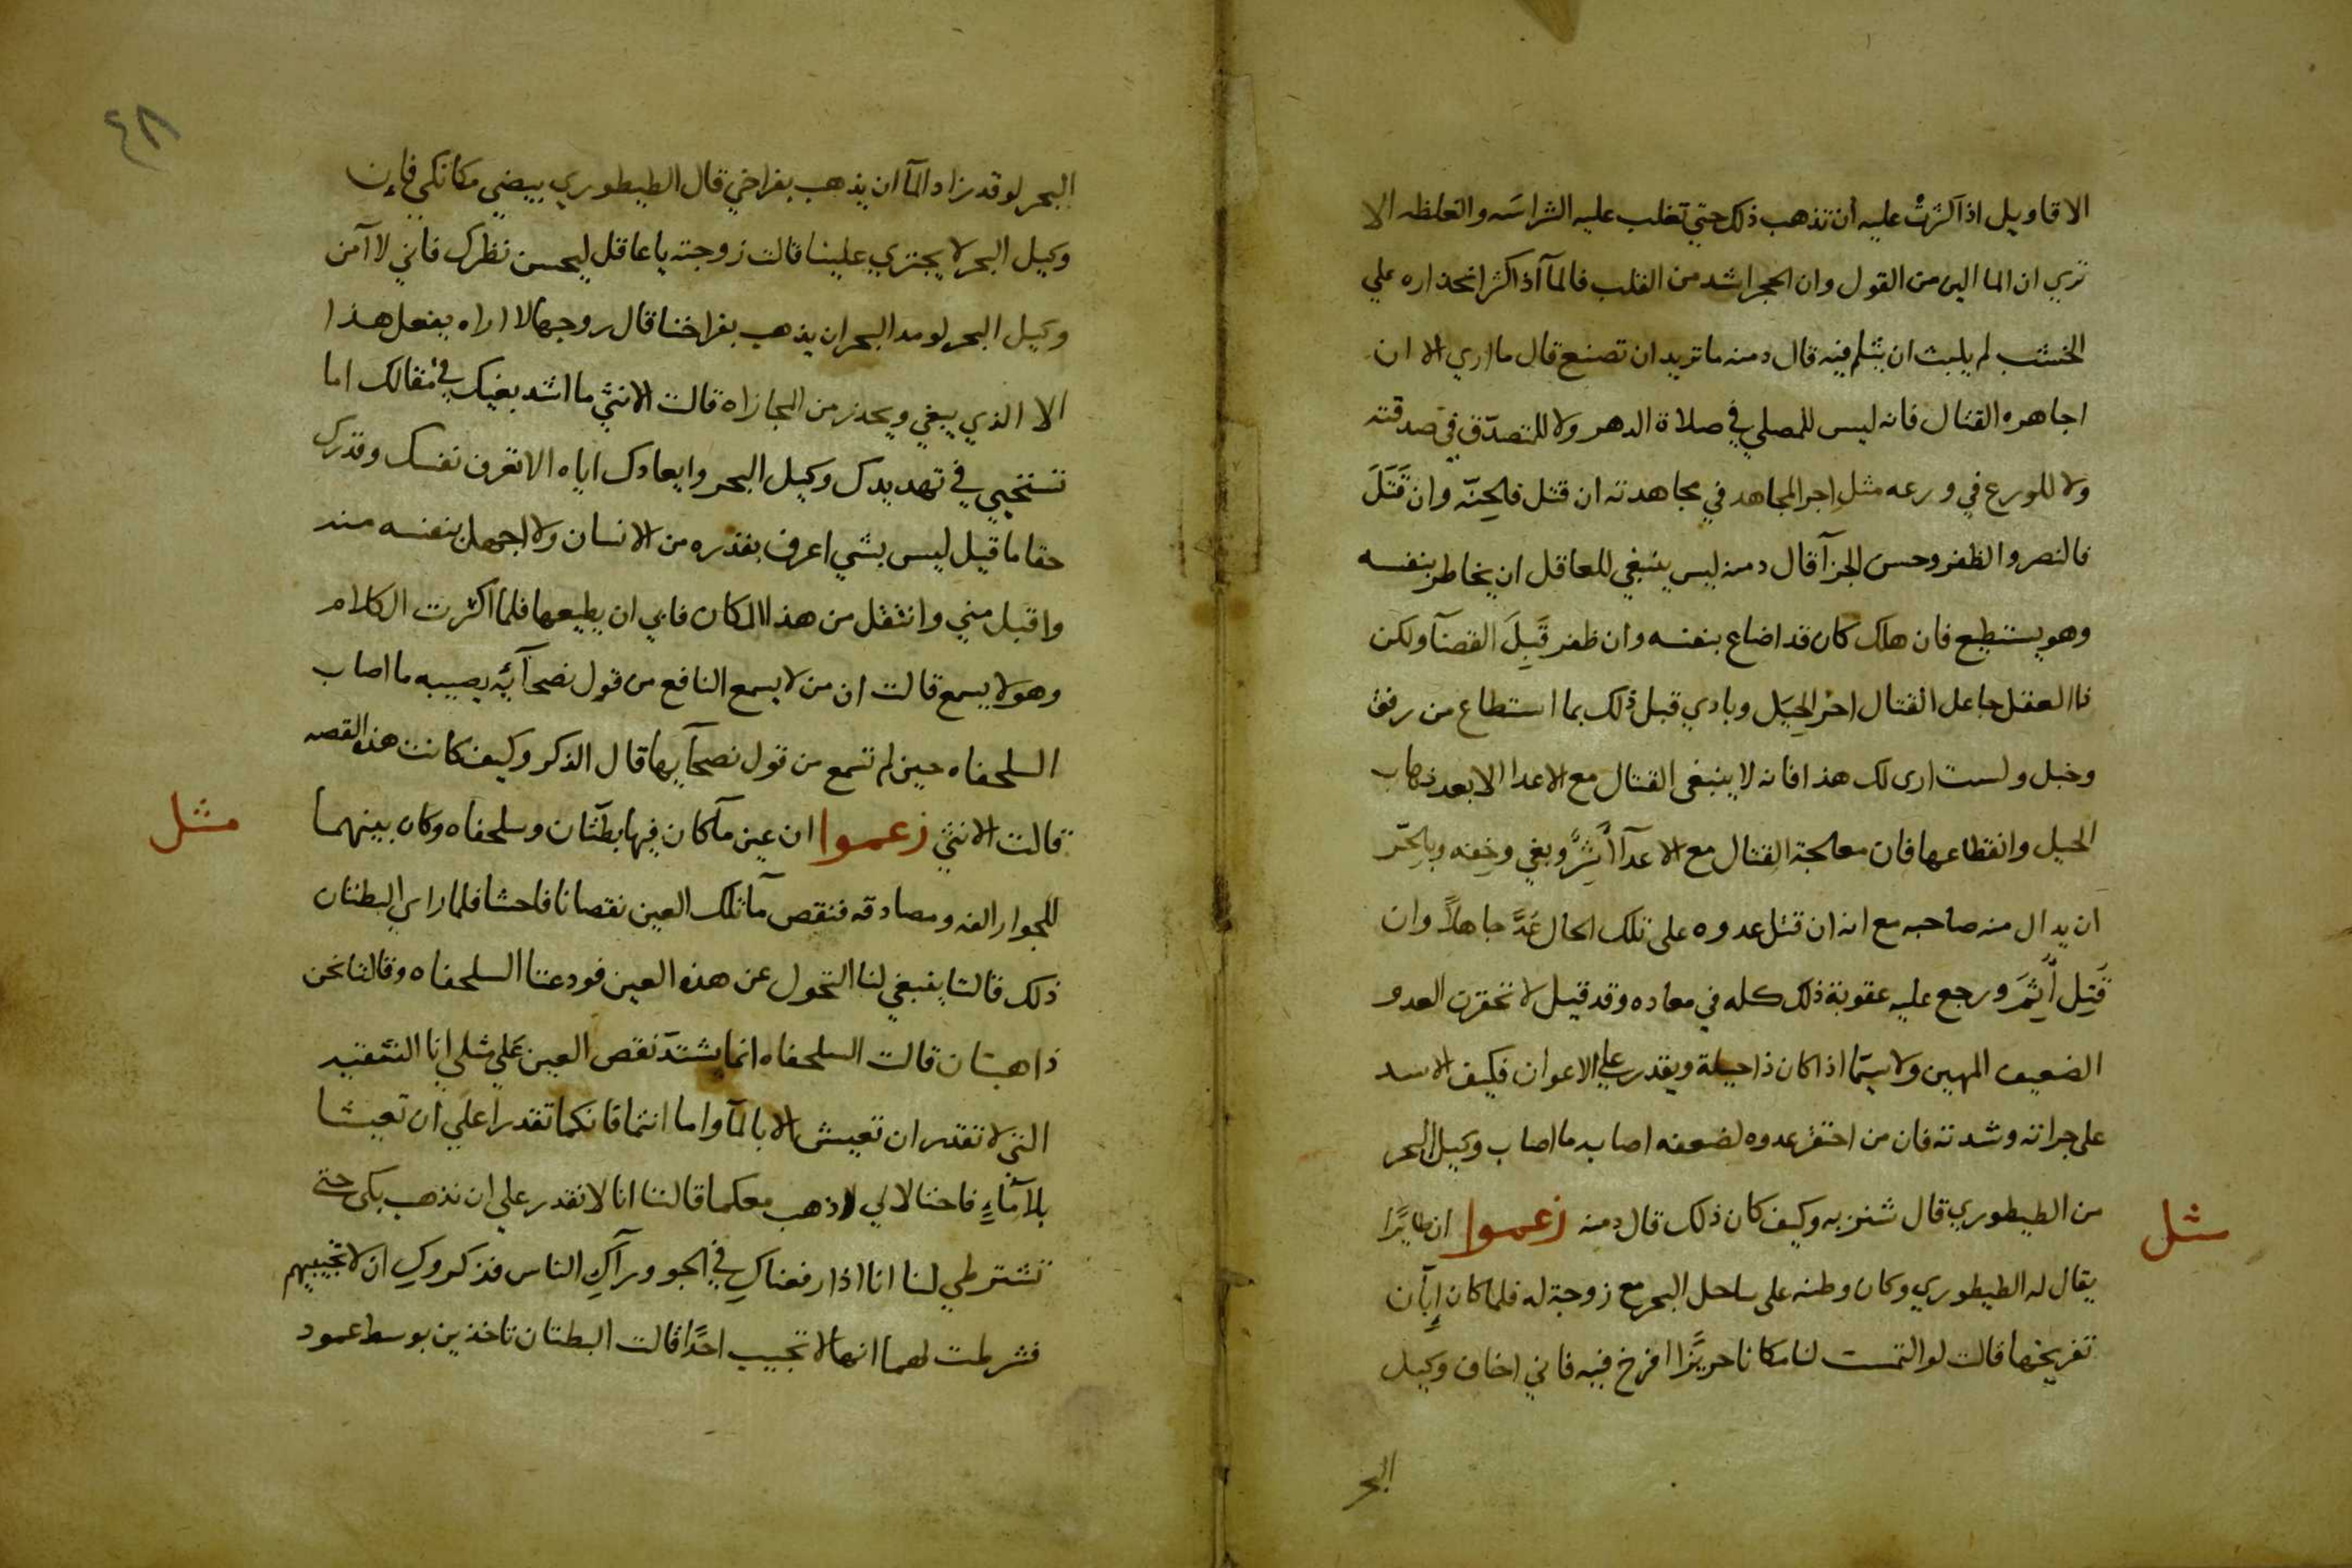 الاقاويل اذا كثرت عليه أن تذهب ذلك حتي تغلب عليه الشراسَه والغلظه الا
تري ان الما الين من القول وان الحجر اشد من القلب فالمآ اذا كثر انحداره علي
الخشب لم يلبث ان يثلم فيه قال دمنه ما تريد ان تصنع قال ما اري الا ان
اجاهره القتال فانه ليس للمصلي في صلاة الدهر ولا للمتصدّق في صدقته
ولا للورع في ورعه مثل اجر المجاهد في مجاهدته ان قتل فالجنّه وان قَتَلَ
فالنصر والظفر وحسن الجزآ قال دمنه ليس ينبغي للعاقل ان يخاطر بنفسه
وهو يستطيع فان هلك كان قد اضاع بنفسه وان ظفر قَبِلَ القضآ ولكن
ذا العقل جاعل القتال اخر الحِيَل وبادي قبل ذلك بما استطاع من رفق
وخبل ولست ارى لك هذا فانه لا ينبغي القتال مع الاعدا الا بعد ذهاب
الحيل وانقطاعها فان معالجة القتال مع الاعدآ أشِرٌ وبغي وخفه
ان يدال منه صاحبه مع انه ان قتل عدوه على تلك الحال عُدَّ جاهلاً وان
قَتِل أَثِمَ ورجع عليه عقوبة ذلك كله في معاده وقد قيل لا تحقرن العدو
الضعيف المهين ولا سيّما اذا كان ذا حيلة ويقدر علي الاعوان فكيف الاسد
على جراته وشدته فان من احتقر عدوه لضعفه اصابه ما اصاب وكيل البحر
من الطيطوري قال شنزبه وكيف كان ذلك قال دمنه زعموا ان طايرًا
مثل
يقال له الطيطوري وكان وطنه على ساحل البحر مع زوجة له فلما كان إبّان
تفريخها قالت لو التمست لنا مكانا حريزًا افرخ فيه فاني اخاف وكيل
البحر
٤٨
البحر لو قد زاد المآ ان يذهب بفراخي قال الطيطوري بيضي مكانكي فان
وكيل البحر لا يجتري علينا قالت زوجته يا عاقل ليحسن نظرك فاني لا آمن
وكيل البحر لو مد البحر ان يذهب بفراخنا قال روجها لا اراه يفعل هذا
الا الذي يبغي ويحذر من المجازاه قالت الانثي ما اشد بغيك في مقالك اما
تستحيي في تهديدك وكيل البحر وايعادك اياه الا تعرف نفسك وقدرك
حقا ما قيل ليس بشي اعرف بقدره من الانسان ولا اجهل بنفسه منه
واقبل مني وانتقل من هذا المكان فابي ان يطيعها فلما اكثرت الكلام
وهو لا يسمع قالت ان من لا يسمع النافع من قول نصحآيه يصيبه ما اصاب
السلحفاه حين لم تسمع من قول نصحآيها قال الذكر وكيف كانت هذه القصه
قالت الانثي زعموا ان عين مآ كان فيها بطّتان وسلحفاه وكان بينهما
مثل
للجوار الفه ومصادقه فنقص مآ تلك العين نقصانا فاحشا فلما راي البطتان
ذلك قالتا ينبغي لنا التحول عن هذه العين فودعتا السلحفاه وقالتا نحن
ذاهبتان قالت السلحفاه انما يشتدّ نقص العين علي مثلي انا
التي لا تقدر ان تعيش الا بالمآ واما انتما فانكما تقدرا علي ان تعيشا
بلا مآءٍ فاحتالا لي اذهب معكما قالتا انا لا نقدر علي ان نذهب بكى حتى
تشترطي لنا انا اذا رفعناكِ في الجو ورآكِ الناس فذكروكِ ان لا تجيبيهم
فشرطت لهما انها لا تجيب احدًا قالت البطتان تاخذين بوسط عمود